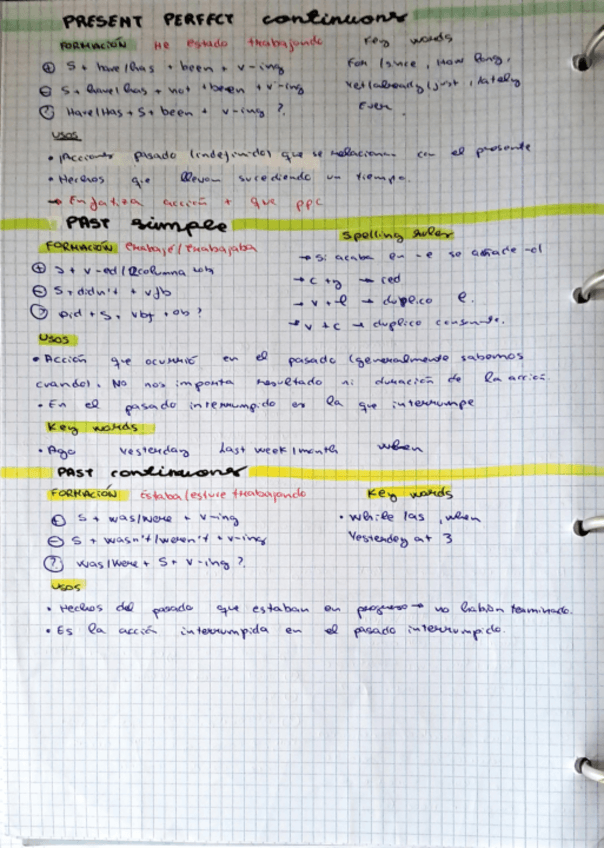 PRESENT PERFECT continuous
FORMACIÓN He estado trabajando Key words
+ S + have/has + been + v-ing For/since, How long,
- S + have/has + not + been + v-ing Yet/already/just, lately
? Have/Has + S + been + v-ing? Ever.
USOS
• Acciones pasado (indefinido) que se relacionan con el presente
• Hechos que llevan sucediendo un tiempo.
→ Enfatiza acción + que PPC
PAST simple
FORMACIÓN trabajé/trabajaba Spelling rules
+ S + v-ed/2columna → Si acaba en -e se añade -d
- S + didn't + → c + y → ied
? Did + S + ? → v + l → duplico l.
→ v + c → duplico consonante.
USOS
• Acción que ocurrió en el pasado (generalmente sabemos
cuando). No nos importa resultado ni duración de la acción.
• En el pasado interrumpido es la que interrumpe
Key words
• Ago Yesterday Last week/month when
PAST continuous
FORMACIÓN Estaba/estuve trabajando Key words
+ S + was/were + v-ing • While/as, when
- S + wasn't/weren't + v-ing Yesterday at 3
? Was/Were + S + v-ing?
USOS
• Hechos del pasado que estaban en progreso → no habían terminado.
• Es la acción interrumpida en el pasado interrumpido.